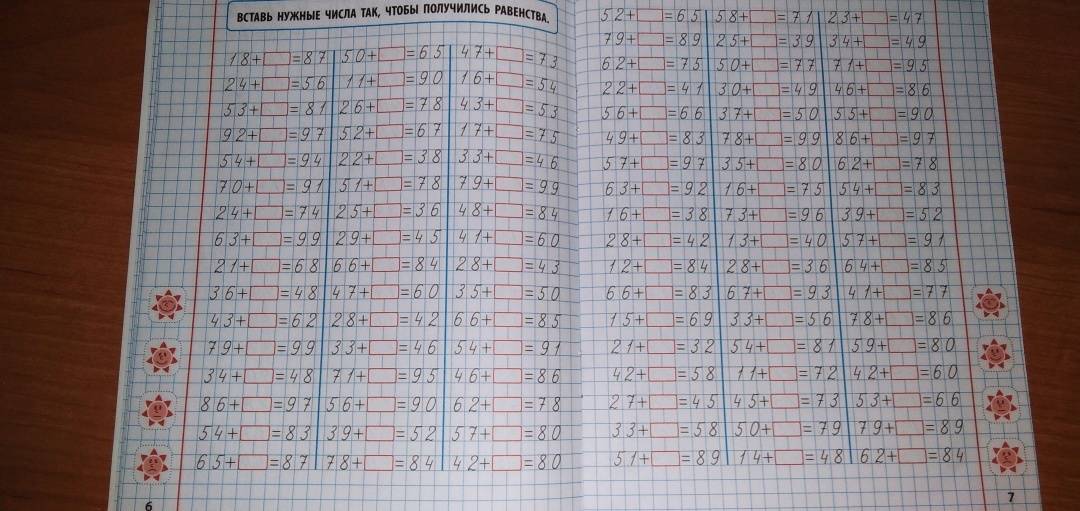 ВСТАВЬ НУЖНЫЕ ЧИСЛА ТАК, ЧТОБЫ ПОЛУЧИЛИСЬ РАВЕНСТВА.
18+□=87 50+□=65 47+□=73
24+□=56 11+□=90 16+□=54
53+□=81 26+□=78 43+□=53
92+□=97 52+□=67 17+□=75
54+□=94 22+□=38 33+□=46
70+□=91 51+□=78 79+□=99
24+□=74 25+□=36 48+□=84
63+□=99 29+□=45 41+□=60
21+□=68 66+□=84 28+□=43
36+□=48 47+□=60 35+□=50
43+□=62 28+□=42 66+□=85
79+□=99 33+□=46 54+□=91
34+□=48 71+□=95 46+□=86
86+□=97 56+□=90 62+□=78
54+□=83 39+□=52 57+□=80
65+□=87 78+□=84 42+□=80
6
52+□=65 58+□=71 23+□=47
79+□=89 25+□=39 34+□=49
62+□=75 50+□=77 71+□=95
22+□=41 30+□=49 46+□=86
56+□=66 37+□=50 55+□=90
49+□=83 78+□=99 86+□=97
57+□=97 35+□=80 62+□=78
63+□=92 16+□=75 54+□=83
16+□=38 73+□=96 39+□=52
28+□=42 13+□=40 57+□=91
12+□=84 28+□=36 64+□=85
66+□=83 67+□=93 41+□=77
15+□=69 33+□=56 78+□=86
21+□=32 54+□=81 59+□=80
42+□=58 11+□=72 42+□=60
27+□=45 45+□=73 53+□=66
33+□=58 50+□=79 79+□=89
51+□=89 14+□=48 62+□=84
7